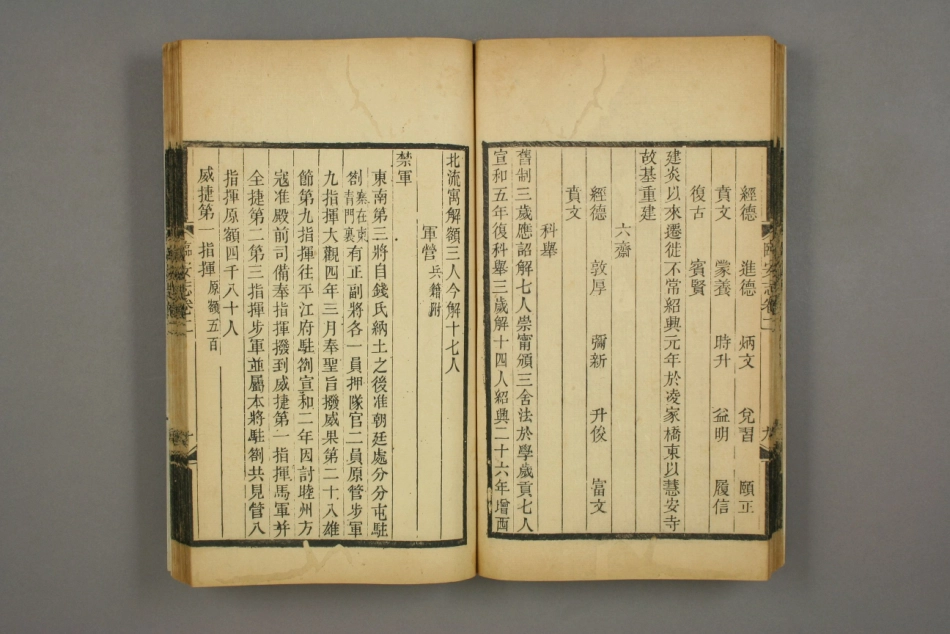 經德　進德　炳文　兌習　頤正
賁文　蒙養　時升　益明　履信
復古　賓賢
建炎以來遷徙不常紹興元年於凌家橋東以慧安寺
故基重建
六齋
經德　敦厚　彌新　升俊　富文
賁文
科舉
舊制三歲應詔解七人崇甯頒三舍法於學歲貢七人
宣和五年復科舉三歲解十四人紹興二十六年增西
臨安志卷二
九
北流寓解額三人今解十七人
軍營兵籍附
禁軍
東南第三將自錢氏納土之後准朝廷處分分屯駐
劄寨在東青門裏有正副將各一員押隊官二員原管步軍
九指揮大觀四年三月奉聖旨撥威果第二十八雄
節第九指揮往平江府駐劄宣和二年因討睦州方
寇准殿前司備奉指揮撥到威捷第一指揮馬軍并
全捷第二第三指揮步軍並屬本將駐劄共見管八
指揮原額四千八十人
威捷第一指揮原額五百
臨安志卷二
十